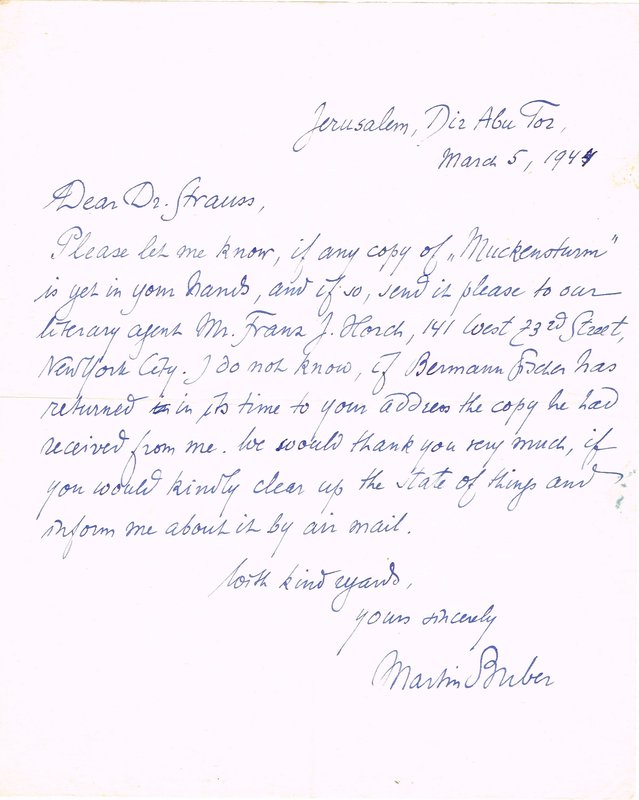 Jerusalem, Dir Abu Tor,
March 5, 1944
Dear Dr. Strauss,
Please let me know, if any copy of „Muckensturm"
is yet in your hands, and if so, send it please to our
literary agent Mr. Franz J. Horch, 141 West 73rd Street,
New York City. I do not know, if Bermann Fischer has
returned in its time to your address the copy he had
received from me. We would thank you very much, if
you would kindly clear up the state of things and
inform me about it by air mail.
With kind regards,
yours sincerely
Martin Buber